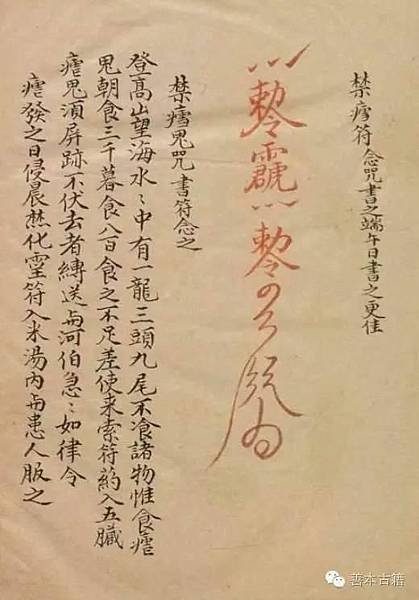 禁瘧符念咒書之端午日書之更佳
敕令
敕令
禁瘧鬼咒書符念之
登高山望海水〻中有一龍三頭九尾不飡諸物惟食瘧
鬼朝食三千暮食八百食之不足差使来索符葯入五臟
瘧鬼須屏跡不伏去者縛送与河伯急〻如律令
瘧發之日侵晨焚化靈符入米湯內与患人服之
善本古籍